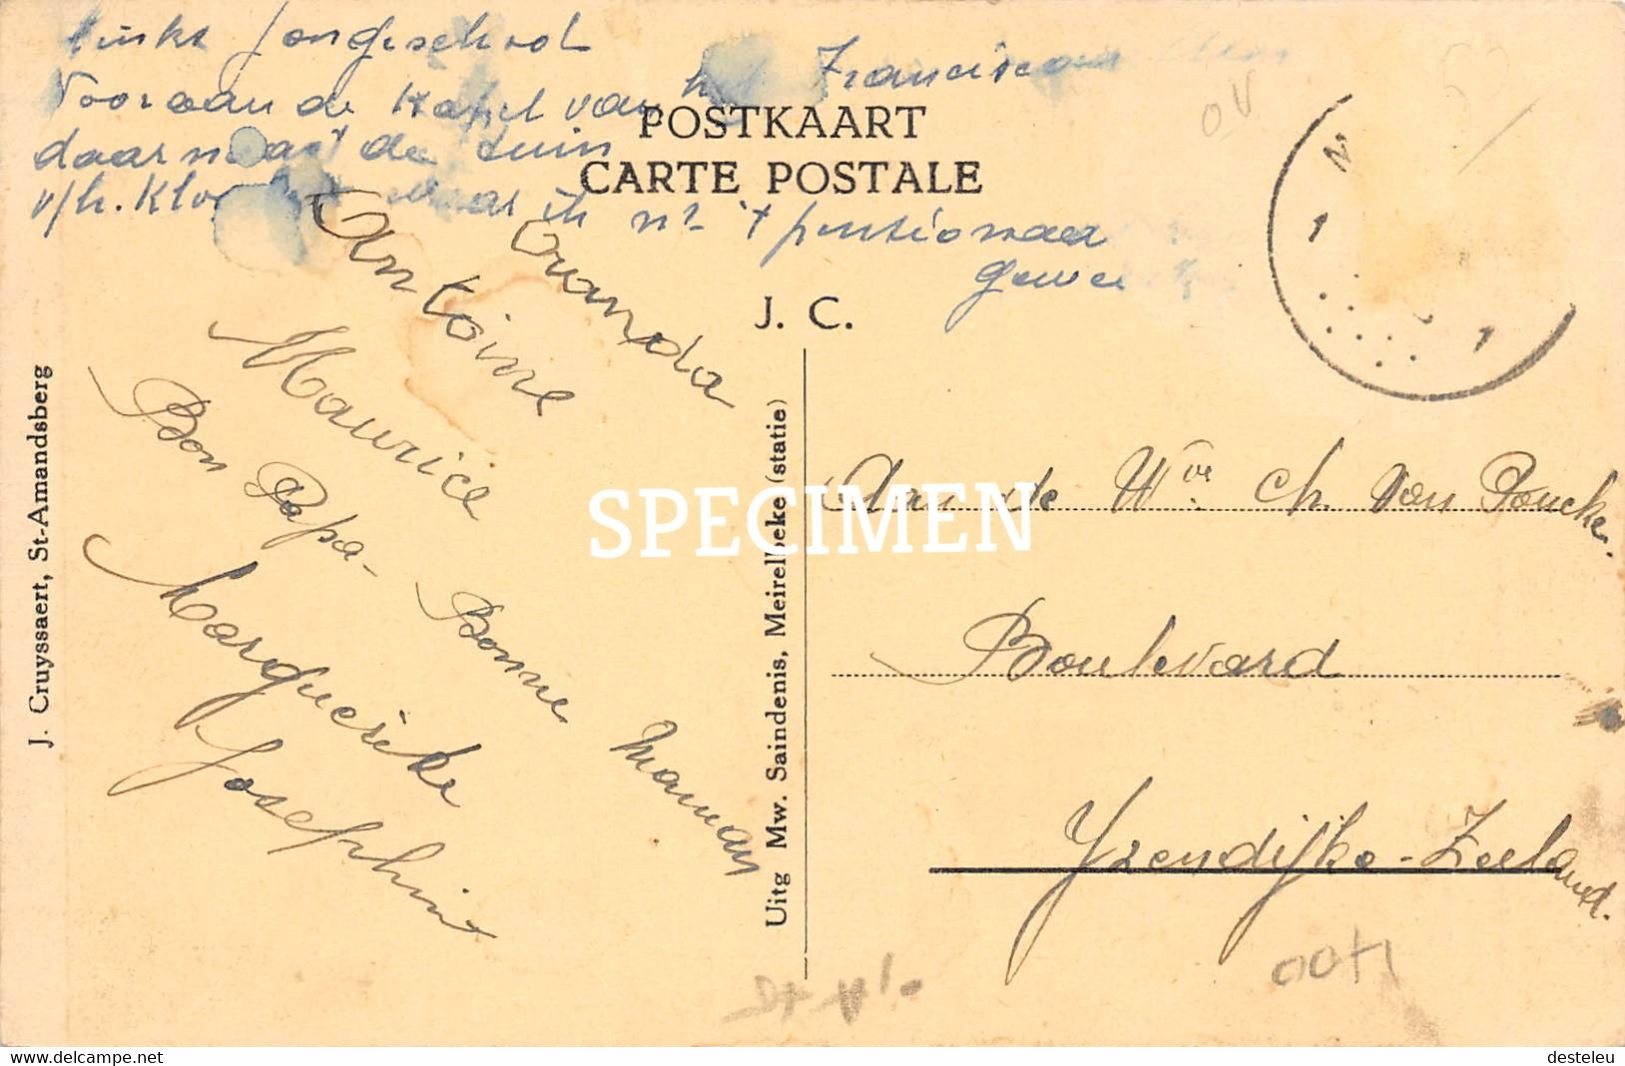 links jongeschool
Vooraan de Kapel van het Franciscanessen
daarnaast de tuin
v/h. Klooster waar ik nr 't pensionaat
gewee
POSTKAART
CARTE POSTALE
J. C.
Antoine
Maurice
Bon Papa - Bonne Maman
Marguerite
Josephine
J. Cruyssaert, St-Amandsberg
Uitg Mw. Saindenis, Meirelbeke (statie)
SPECIMEN
Aan de Wve Ch. Van Poucke.
Boulevard
Yzendijke - Zeeland.
delcampe.net
desteleu